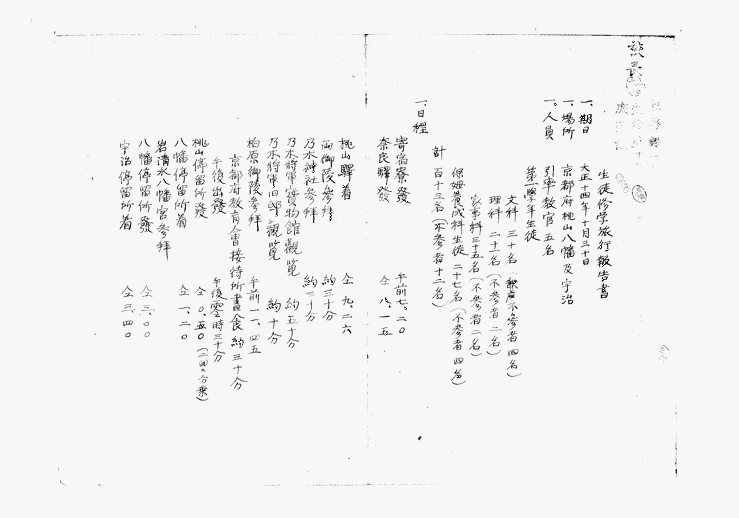 生徒修学旅行報告書
一、期日 大正十四年十月三十日
一、場所 京都府桃山八幡及宇治
一、人員 引率教官五名
第一學年生徒
文科 三十名 不参者四名)
理科 二十一名(不参者二名)
家事科三十五名(不参者二名)
保姆養成科生徒二十七名(不参者四名)
計 百十三名(不参者十二名)
一、日程
寄宿寮発 午前七、二〇
奈良驛発 仝 八、一五
桃山驛着 仝 九、二六
両御陵参拝 約三十分
乃木神社参拝 約三十分
乃木将軍宝物館観覧 約五十分
乃木将軍旧邸観覧 約十分
柏原御陵参拝 午前一一、四五
京都府教育會接待所晝食 約三十分
午後出發 午後零時三十分
桃山停留所發 仝 〇、五〇(二回ニ分乗)
八幡停留所着 仝 一、二〇
岩清水八幡宮参拝
八幡停留所發 仝 三、〇〇
宇治停留所着 仝 三、四〇